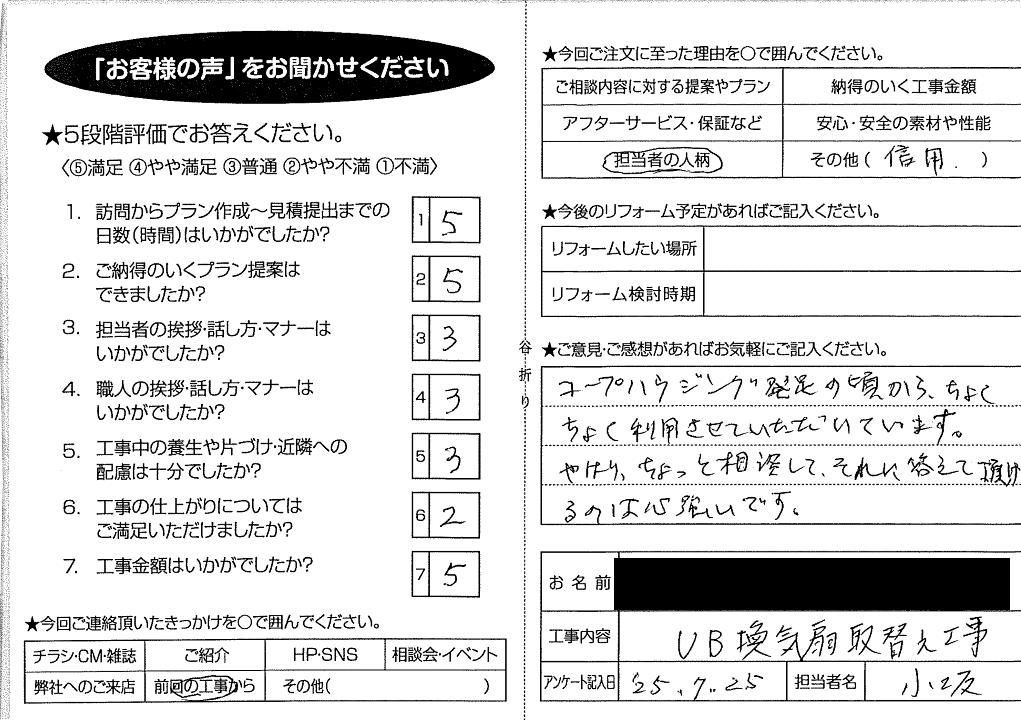 「お客様の声」をお聞かせください
★5段階評価でお答えください。
〈⑤満足 ④やや満足 ③普通 ②やや不満 ①不満〉
1. 訪問からプラン作成〜見積提出までの
日数(時間)はいかがでしたか?
1 5
2. ご納得のいくプラン提案は
できましたか?
2 5
3. 担当者の挨拶・話し方・マナーは
いかがでしたか?
3 3
4. 職人の挨拶・話し方・マナーは
いかがでしたか?
4 3
5. 工事中の養生や片づけ・近隣への
配慮は十分でしたか?
5 3
6. 工事の仕上がりについては
ご満足いただけましたか?
6 2
7. 工事金額はいかがでしたか?
7 5
★今回ご連絡頂いたきっかけを〇で囲んでください。
チラシ・CM・雑誌 ご紹介 HP・SNS 相談会・イベント
弊社へのご来店 前回の工事から その他( )
谷折り
★今回ご注文に至った理由を〇で囲んでください。
ご相談内容に対する提案やプラン 納得のいく工事金額
アフターサービス・保証など 安心・安全の素材や性能
担当者の人柄 その他( 信用. )
★今後のリフォーム予定があればご記入ください。
リフォームしたい場所
リフォーム検討時期
★ご意見・ご感想があればお気軽にご記入ください。
コープハウジング発足の頃から、ちょく
ちょく利用させていただいています。
やはり、ちょっと相談して、それに答えて頂け
るのは心強いです。
お名前
工事内容 UB換気扇取替え工事
アンケート記入日 '25.7.25 担当者名 小坂